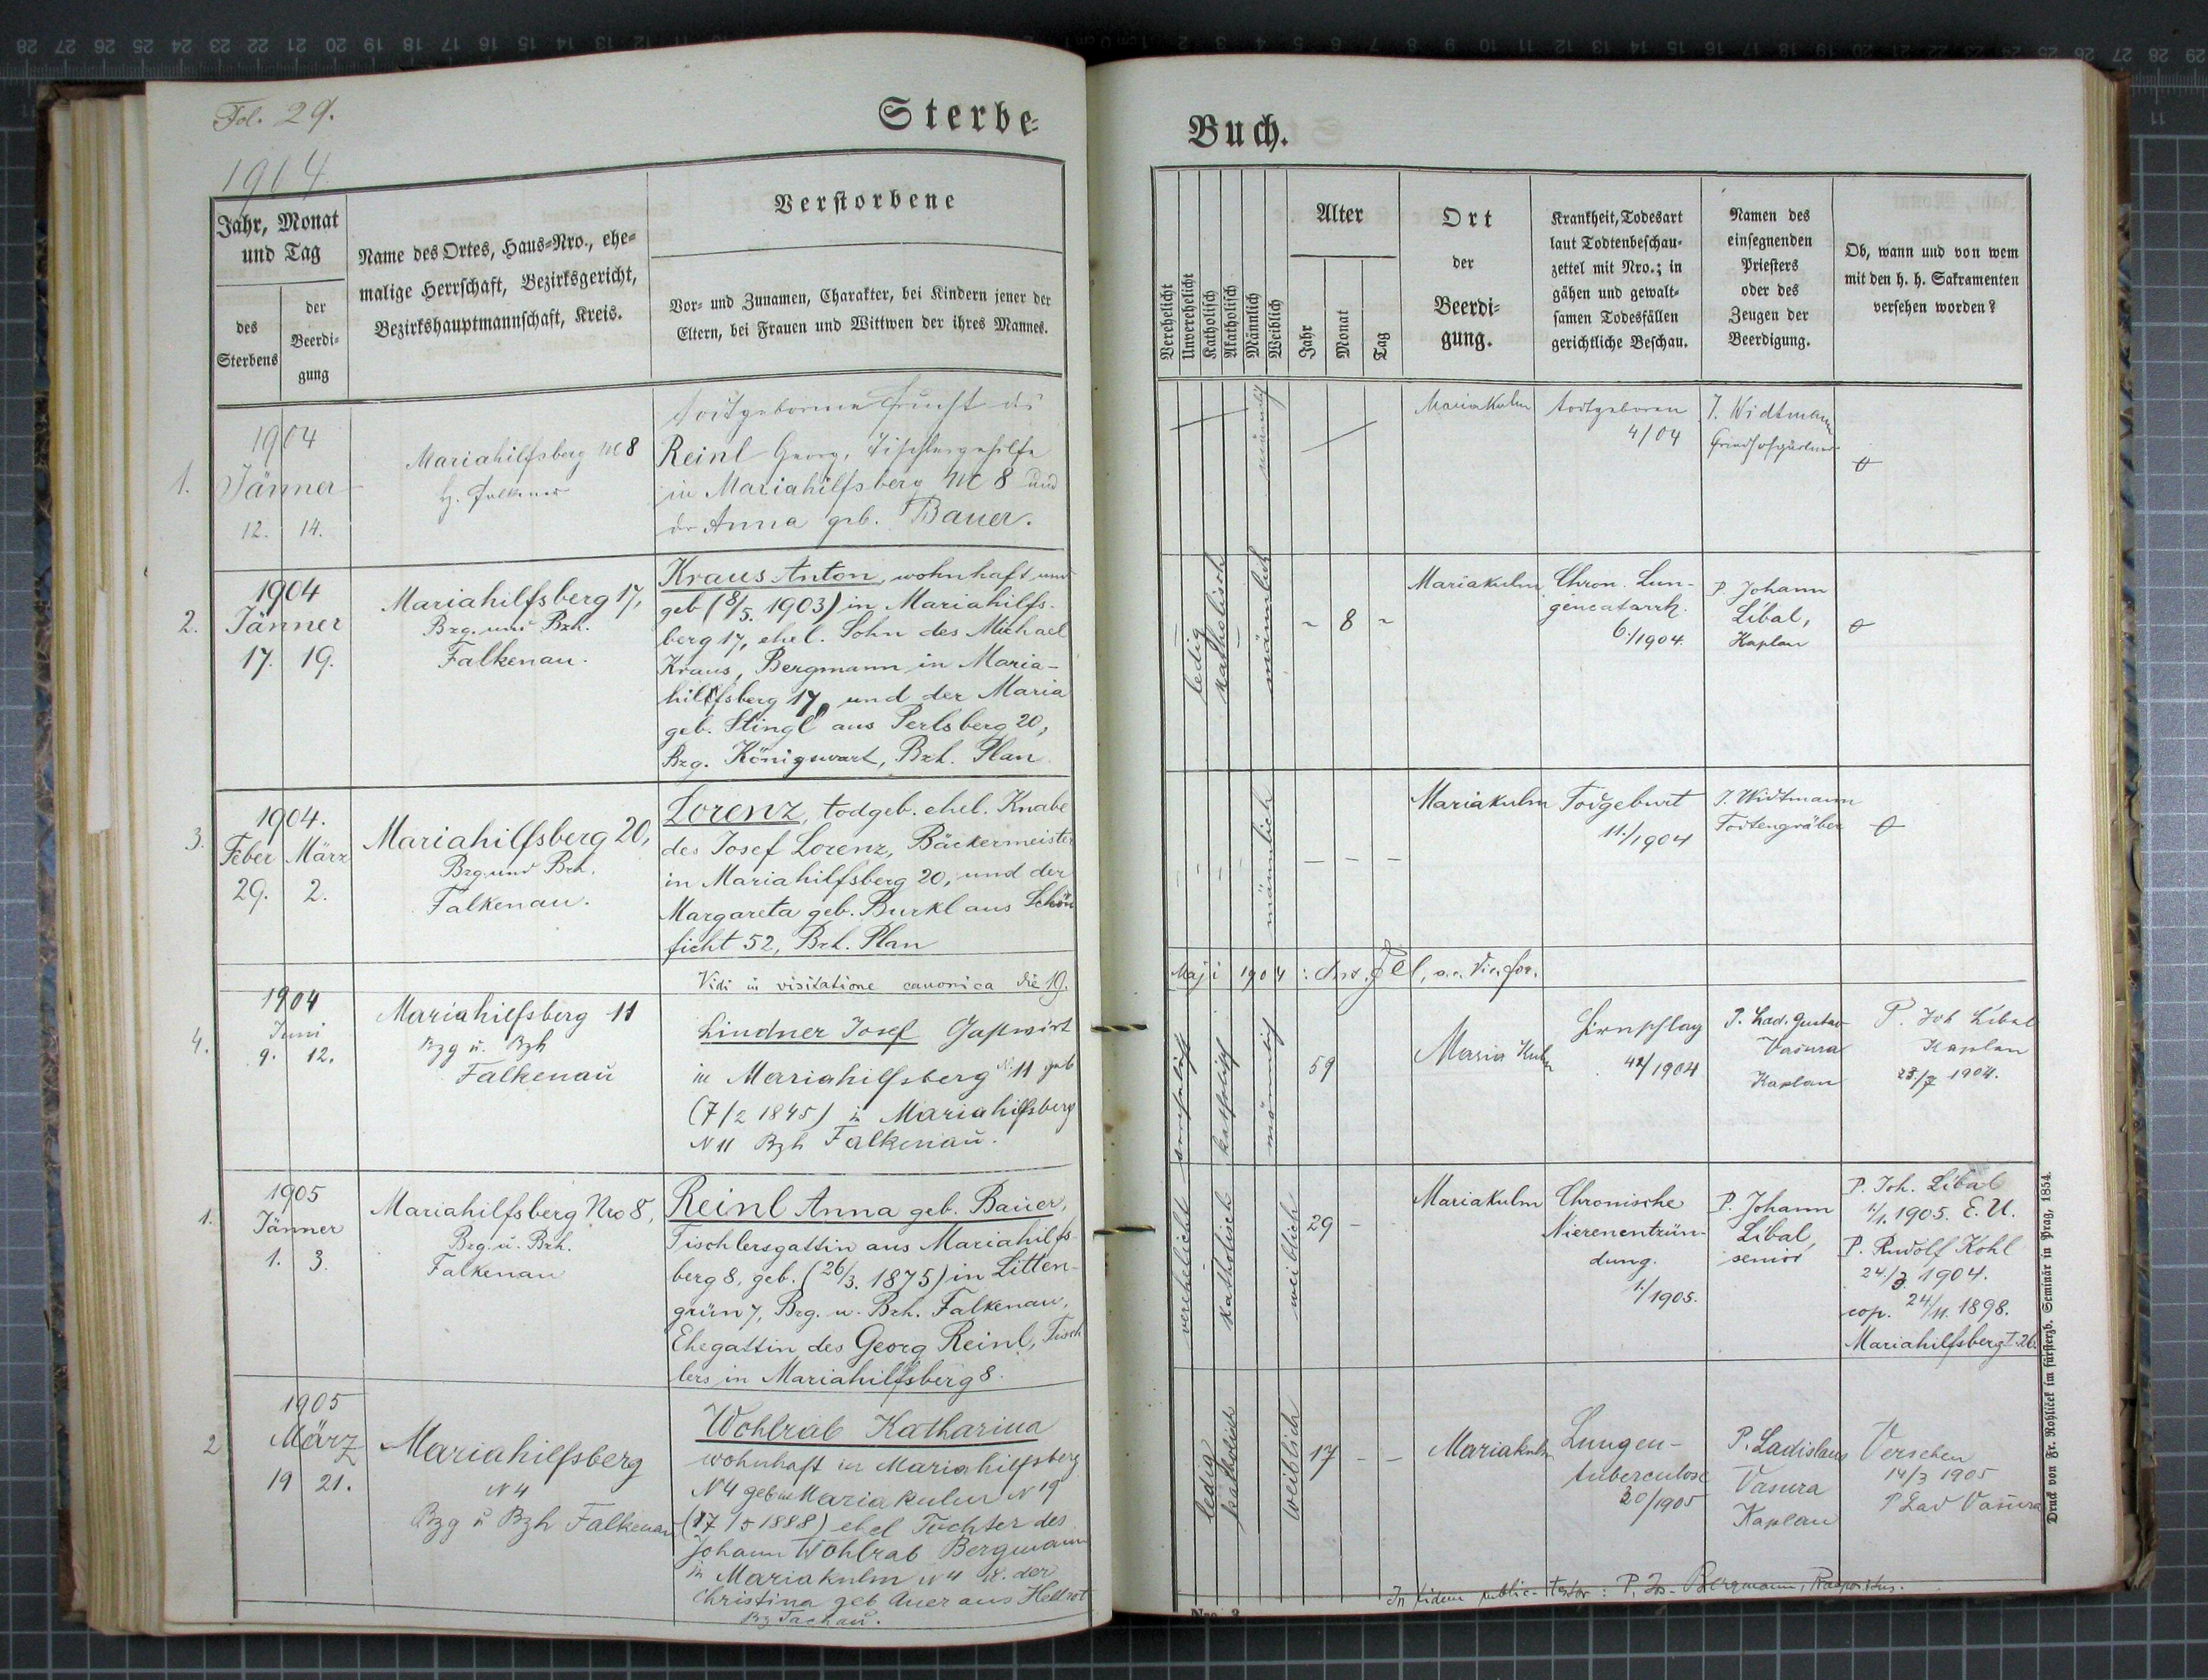 Fol. 29.
Sterbe-
1904
Jahr, Monat
und Tag
des
Sterbens
der
Beerdi-
gung
Name des Ortes, Haus-Nro., ehe-
malige Herrschaft, Bezirksgericht,
Bezirkshauptmannschaft, Kreis.
Verstorbene
Vor- und Zunamen, Charakter, bei Kindern jener der
Eltern, bei Frauen und Wittwen der ihres Mannes.
1.
1904
Jänner
12. 14.
Mariahilfsberg No 8
Todtgeborene Frucht des
Reinl Georg, Tischlergehilfe
in Mariahilfsberg No 8 und
der Anna geb. Bauer.
2.
1904
Jänner
17. 19.
Mariahilfsberg 17,
Bzg. und Bzh.
Falkenau.
Kraus Anton, wohnhaft und
geb (8/5. 1903) in Mariahilfs-
berg 17, ehel. Sohn des Michael
Kraus, Bergmann in Maria-
hilfsberg 17, und der Maria
geb. Stingl aus Perlsberg 20,
Bzg. Königswart, Bzh. Plan.
3.
1904.
Feber März
29. 2.
Mariahilfsberg 20,
Bzg. und Bzh.
Falkenau.
Lorenz, todgeb. ehel. Knabe
des Josef Lorenz, Bäckermeister
in Mariahilfsberg 20, und der
Margareta geb. Burkl aus Schön
ficht 52, Bzh. Plan
Vidi in visitatione canonica die 19.
4.
1904
Juni
9. 12.
Mariahilfsberg 11
Bzg u. Bzh
Falkenau
Lindner Josef Gastwirt
in Mariahilfsberg N 11 geb
(7/2 1845) in Mariahilfsberg
N 11 Bzh Falkenau.
1.
1905
Jänner
1. 3.
Mariahilfsberg Nro 8,
Bzg. u. Bzh.
Falkenau
Reinl Anna geb. Bauer,
Tischlersgattin aus Mariahilfs-
berg 8, geb. (26/3. 1875) in Litten-
grün 7, Bzg. u. Bzh. Falkenau,
Ehegattin des Georg Reinl, Tisch
lers in Mariahilfsberg 8.
2
1905
März
19 21.
Mariahilfsberg
N 4
Bzg u Bzh Falkenau
Wohlrab Katharina
wohnhaft in Mariahilfsberg
N 4 geb in Mariakulm N 19
(17/5 1888) ehel Tochter des
Johann Wohlrab Bergmann
in Mariakulm N 4 u. der
Christina geb Auer aus
Bz Tachau.
Buch.
Verehelicht
Unverehelicht
Katholisch
Akatholisch
Männlich
Weiblich
Alter
Jahr
Monat
Tag
Ort
der
Beerdi-
gung.
Krankheit, Todesart
laut Todtenbeschau-
zettel mit Nro.; in
gähen und gewalt-
samen Todesfällen
gerichtliche Beschau.
Namen des
einsegnenden
Priesters
oder des
Zeugen der
Beerdigung.
Ob, wann und von wem
mit den h. h. Sakramenten
versehen worden?
männlich
Mariakulm
todtgeboren
4/04
J. Widtmann
ledig
katholisch
männlich
- 8 -
Mariakulm
Chron. Lun-
gencatarrh.
6./1904.
P. Johann
Libal,
Kaplan
männlich
- - -
Mariakulm
Todgeburt
11./1904
J. Widtmann
Todtengräber
Maji 1904
verehelicht
katholisch
männlich
59
Maria Kulm
Hirnschlag
42/1904
P. Lad. Gustav
Vašura
Kaplan
P. Joh Libal
Kaplan
verehelicht
katholisch
weiblich
29 -
Mariakulm
Chronische
Nierenentzün-
dung.
1./1905.
P. Johann
Libal,
senior
P. Joh. Libal
1/1. 1905. E. U.
P. Rudolf Kohl
24./3 1904.
cop. 24/11. 1898.
Mariahilfsberg
ledig
katholisch
weiblich
17 - -
Mariakulm
Lungen-
tuberculose
20/1905
P. Ladislaus
Vašura
Kaplan
Versehen
14/3 1905
P Lad Vašura
In fidem public. testor: P. Jos. Bergmann,
Nro. 3.
Druck von Fr. Rohlicek im fürsterzb. Seminär in Prag, 1854.